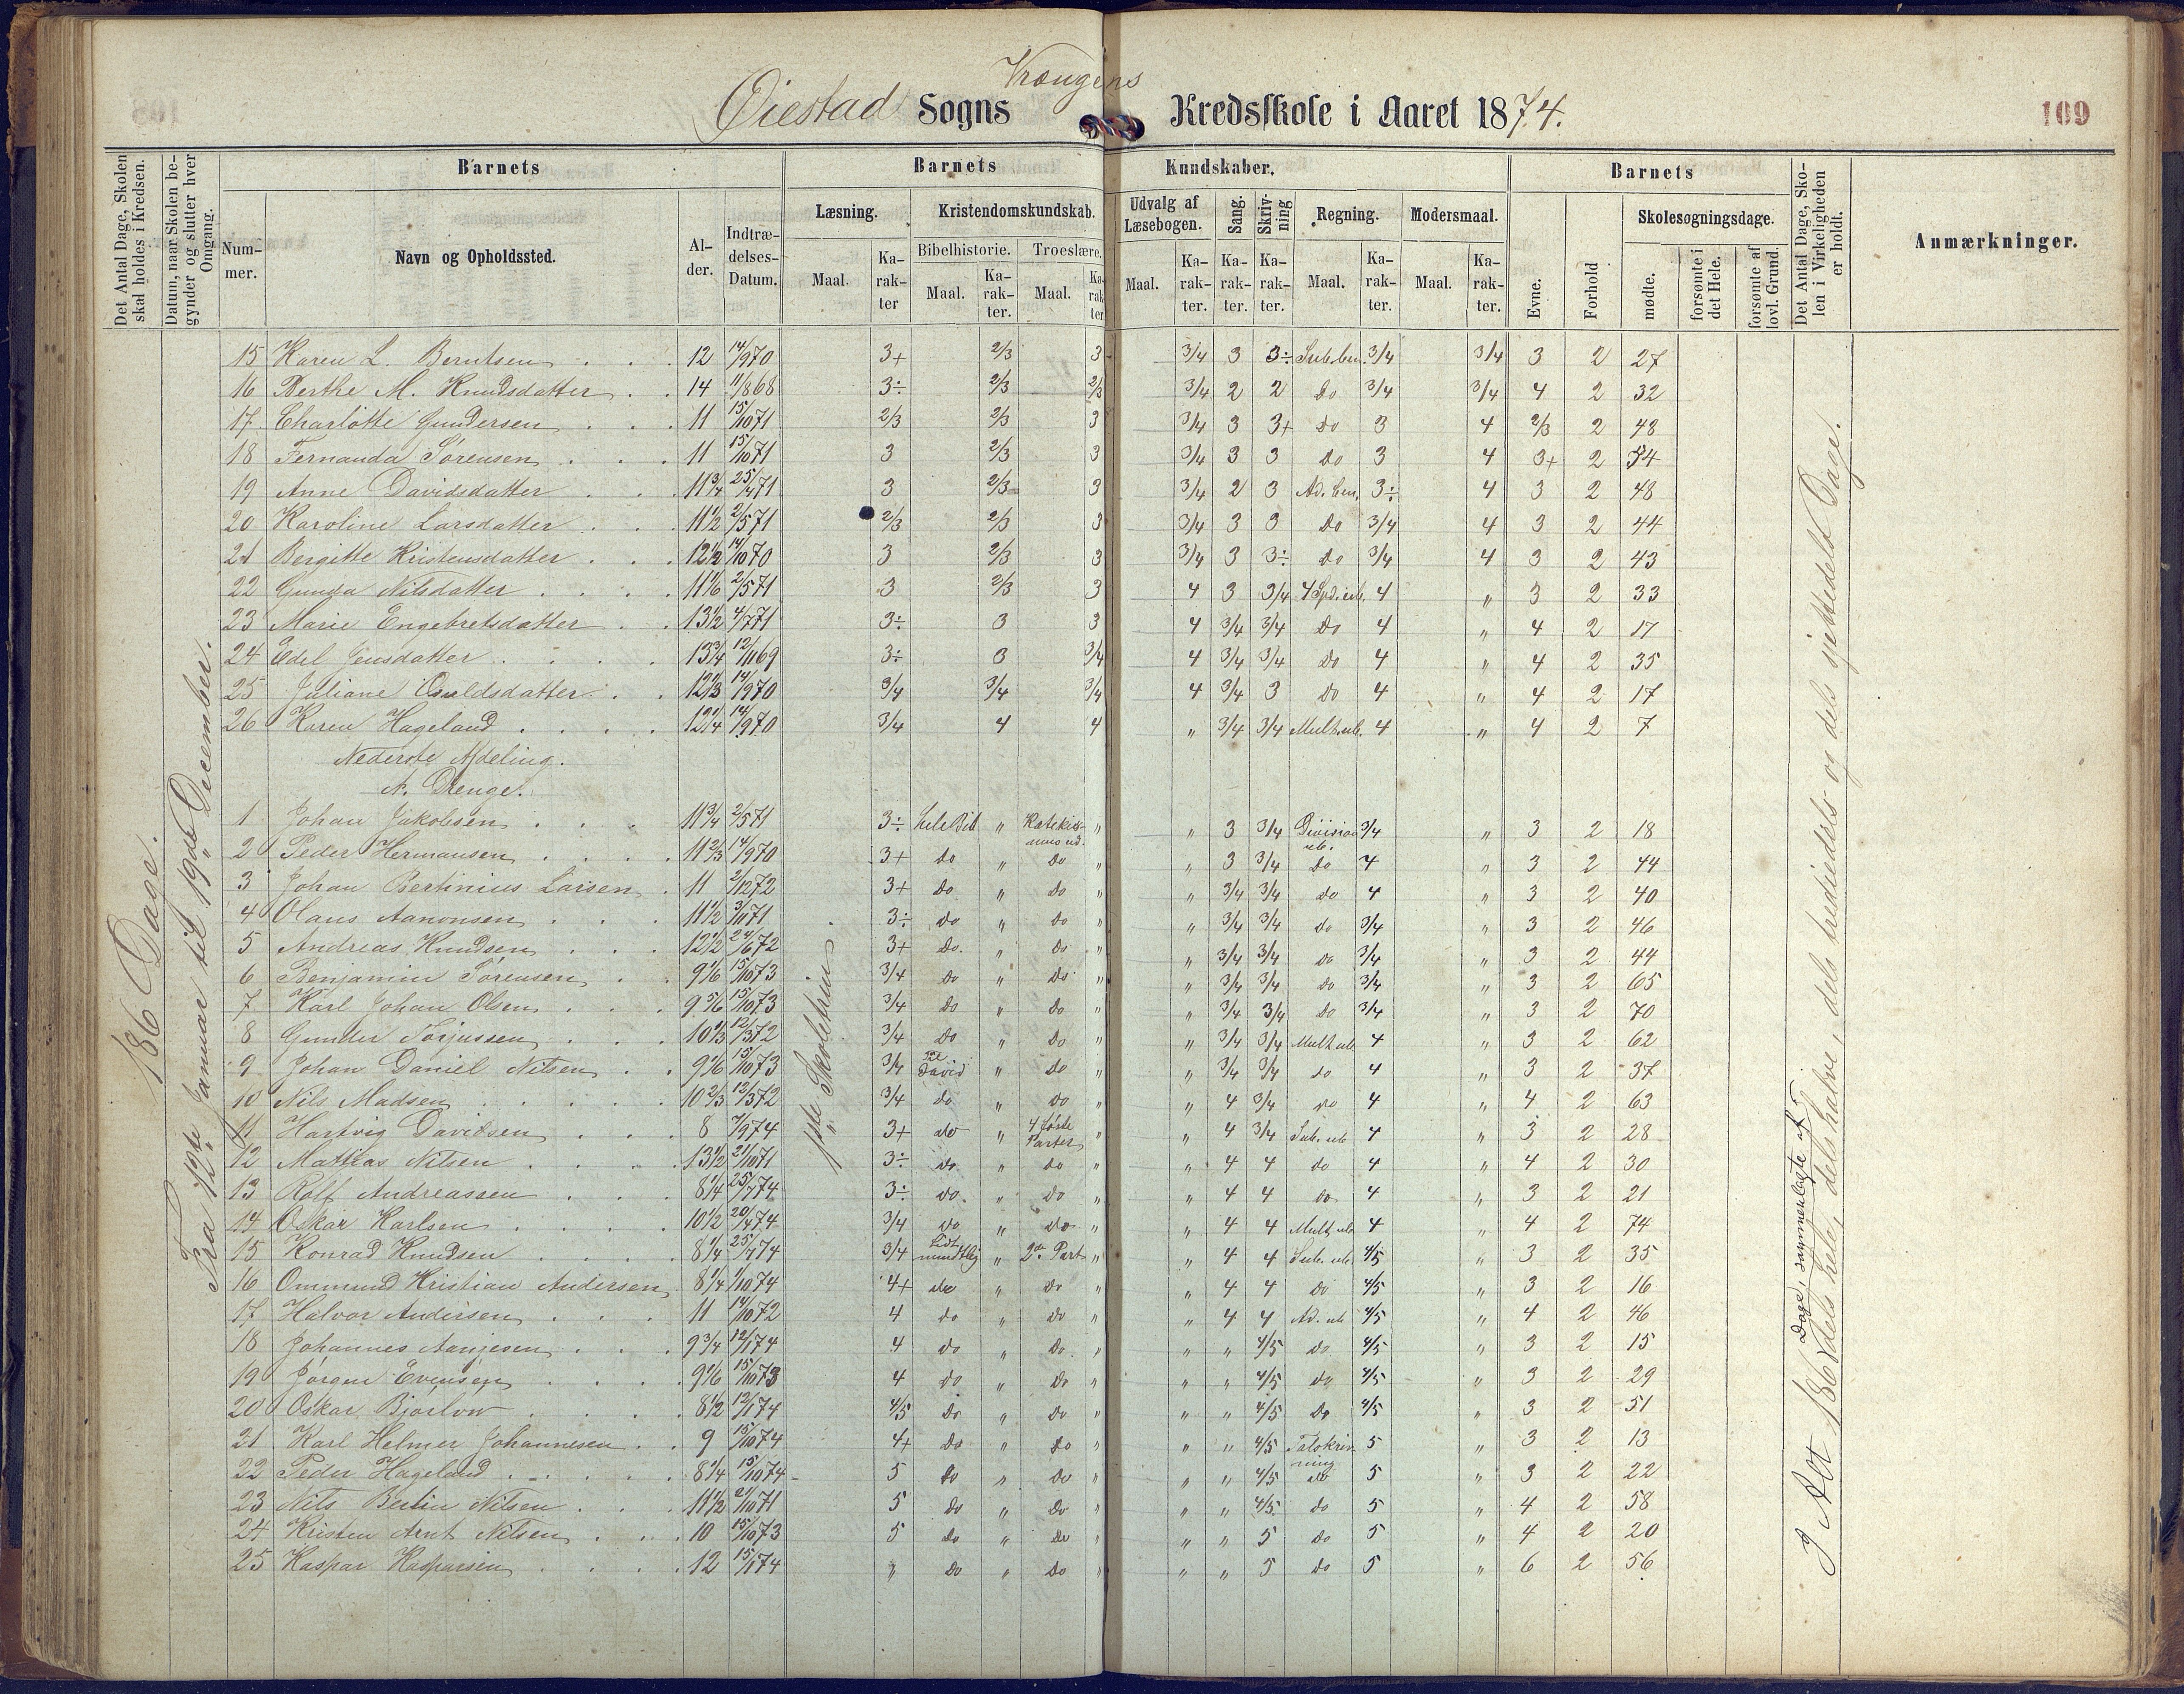 Øiestad Sogns Vrængens Kredsskole i Aaret 1874.
109
Det Antal Dage, Skolen skal holdes i Kredsen.
Datum, naar Skolen begynder og slutter hver Omgang.
Barnets
Nummer.
Navn og Opholdssted.
Alder.
Indtrædelses-Datum.
Barnets Kundskaber.
Læsning.
Maal.
Karakter
Kristendomskundskab.
Bibelhistorie.
Maal.
Karakter.
Troeslære.
Maal.
Karakter.
Udvalg af Læsebogen.
Maal.
Karakter.
Sang.
Karakter.
Skrivning
Karakter.
Regning.
Maal.
Karakter.
Modersmaal.
Maal.
Karakter.
Barnets
Evne.
Forhold
Skolesøgningsdage.
mødte.
forsømte i det Hele.
forsømte af lovl. Grund.
Det Antal Dage, Skolen i Virkeligheden er holdt.
Anmærkninger.
186 Dage.
Fra 12te Januar til 19de December.
1ste Skoletrin
15 Karen L. Berntsen 12 14/9 70 3+ 2/3 3 3/4 3 3÷ Sub. ben. 3/4 3/4 3 2 27
16 Berthe M. Knudsdatter 14 11/8 68 3÷ 2/3 2/3 3/4 2 2 do 3/4 3/4 4 2 32
17 Charlotte Gundersen 11 15/10 71 2/3 2/3 3 3/4 3 3+ do 3 4 2/3 2 48
18 Fernanda Sørensen 11 15/10 71 3 2/3 3 3/4 3 3 do 3 4 3+ 2 54
19 Anne Davidsdatter 11 3/4 25/4 71 3 2/3 3 3/4 2 3 Ad. ben. 3÷ 4 3 2 48
20 Karoline Larsdatter 11 1/2 2/5 71 2/3 2/3 3 3/4 3 3 do 3/4 4 3 2 44
21 Bergitte Kristensdatter 12 1/2 14/10 70 3 2/3 3 3/4 3 3÷ do 3/4 4 3 2 43
22 Gunda Nilsdatter 11 1/6 2/5 71 3 2/3 3 4 3 3/4 4 Spd. ub. 4 " 3 2 33
23 Marie Engebretsdatter 13 1/2 4/7 71 3÷ 3 3 4 3/4 3/4 Do 4 " 4 2 17
24 Edel Jensdatter 13 3/4 12/11 69 3÷ 3 3/4 4 3/4 3/4 Do 4 " 4 2 35
25 Juliane Osuldsdatter 12 2/3 14/9 70 3/4 3/4 3/4 4 3/4 3 Do 4 " 4 2 17
26 Karen Hageland 12 1/4 14/9 70 3/4 4 4 " 3/4 3/4 Mult. ub. 4 " 4 2 7
Nederste Afdeling.
A. Drenge.
1 Johan Jakobsen 11 3/4 2/5 71 3÷ Hele Bib " Katekismus ud. " " 3 3/4 Division ub. 3/4 " 3 2 18
2 Peder Hermansen 11 2/3 14/9 70 3+ do " Do " " 3 3/4 do 4 " 3 2 44
3 Johan Bertinius Larsen 11 2/12 72 3+ do " do " " 3/4 3/4 do 4 " 3 2 40
4 Olaus Aanonsen 11 1/2 3/11 71 3÷ do " do " " 3/4 3/4 do 3/4 " 3 2 46
5 Andreas Knudsen 12 1/2 24/6 72 3+ Do. " Do " " 3/4 3/4 do 3/4 " 3 2 44
6 Benjamin Sørensen 9 1/6 15/10 73 3/4 Do " Do " " 3/4 3/4 do 3/4 " 3 2 65
7 Karl Johan Olsen 9 5/6 15/10 73 3/4 Do " do " " 3/4 3/4 do 3/4 " 3 2 70
8 Gunder Torjussen 10 1/3 12/3 72 3/4 Do " Do " " 3/4 3/4 Mult ub 4 " 3 2 62
9 Johan Daniel Nilsen 9 1/6 15/10 73 3/4 Til David " do " " 3/4 3/4 do 4 " 3 2 37
10 Nils Madsen 10 2/3 12/3 72 3/4 do " do " " 4 3/4 do 4 " 4 2 63
11 Hartvig Davidsen 8 7/9 74 3+ do " 4 første Parter " " 4 3/4 Sub. ub 4 " 3 2 28
12 Mathias Nilsen 13 1/2 21/10 71 3÷ do " do " " 4 4 do 4 " 4 2 30
13 Rolf Andreassen 8 1/4 25/7 74 3÷ do. " do " " 4 4 do 4 " 3 2 21
14 Oskar Karlsen 10 1/2 20/4 74 3/4 do " do " " 4 4 Mult ub 4 " 4 2 74
15 Konrad Knudsen 8 1/4 25/7 74 3/4 Lidt mundtlig " 2de Part " " 4 4 Sub. ub 4/5 " 3 2 35
16 Ommund Kristian Andersen 8 1/4 1/10 74 4+ do " Do " " 4 4 Do 4/5 " 3 2 16
17 Halvor Andersen 11 14/10 72 4 do " do " " 4 4 Ad. ub 4/5 " 4 2 46
18 Johannes Aanjesen 9 3/4 12/1 74 4 do " Do. " " " 4/5 Do 4/5 " 3 2 15
19 Jørgen Evensen 9 1/6 15/10 73 4 do " do " " " 4/5 do 4/5 " 3 2 29
20 Oskar Bjorlow 8 1/2 12/1 74 4/5 Do " Do " " " 4/5 Do 4/5 " 3 2 51
21 Karl Helmer Johannesen 9 15/10 74 4+ Do " do " " " 4/5 Talskrivning 5 " 3 2 13
22 Peder Hageland 8 1/4 15/10 74 5 Do " Do " " " 4/5 do 5 " 3 2 22
23 Nils Bertin Nilsen 11 1/2 21/10 71 5 Do " Do " " " 4/5 do 5 " 4 2 58
24 Kristen Arnt Nilsen 10 15/10 73 5 do " do " " " 5 Do 5 " 4 2 20
25 Kaspar Kasparsen 12 15/1 74 " Do " Do " " " 5 do 5 " 6 2 56
I Alt 186 Dage, sammenlagte af (dels hele, dels halve, dels tredjedels og dels sjettedels Dage.